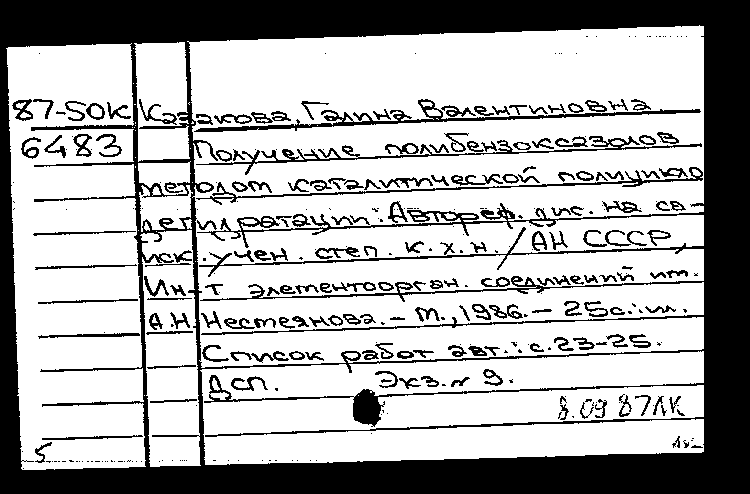 87-50К Казакова, Галина Валентиновна
6483 Получение полибензоксазолов
методом каталитической полицикло
дегидратации: Автореф. дис. на со-
иск. учен. степ. к.х.н. / АН СССР,
Ин-т элементоорган. соединений им.
А.Н. Несмеянова. - М., 1986. - 25с.: ил.
Список работ авт.: с. 23-25.
ДСП. Экз. № 9.
8.09 87ЛК
5